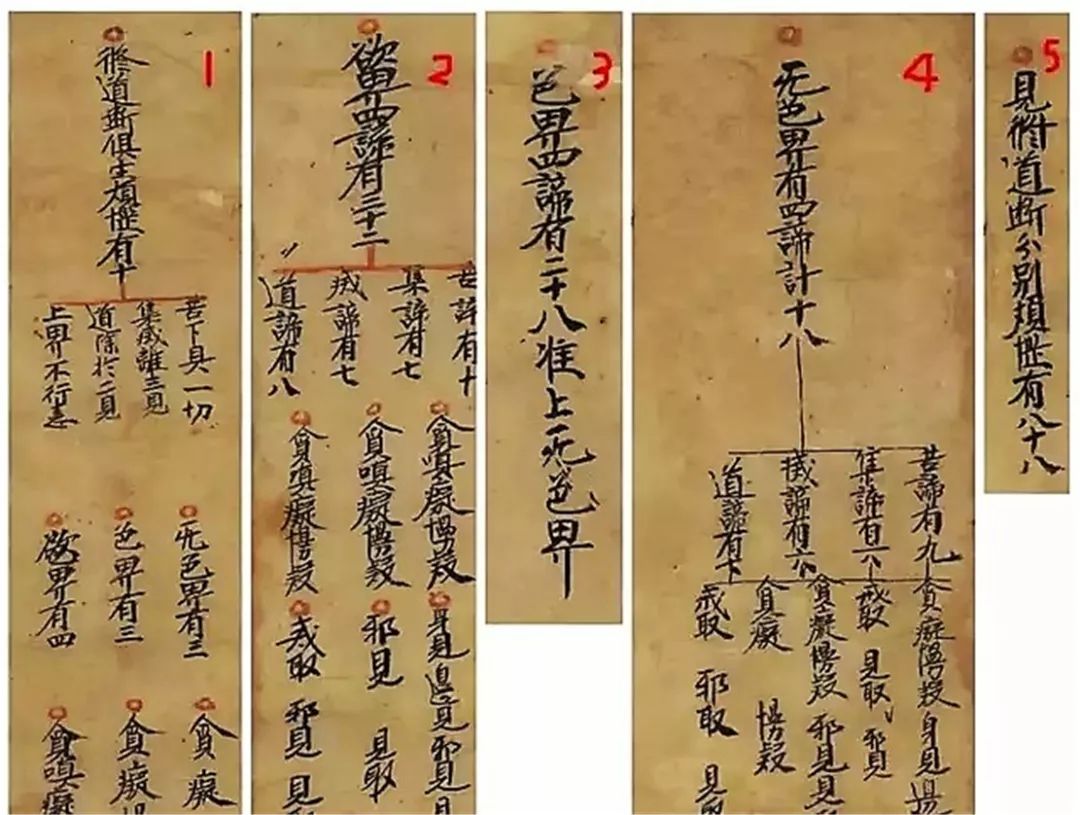 1
修道断俱生煩惱有十
苦下具一切
集滅離三見
道除於二見
上界不行恚
无色界有三
色界有三
欲界有四
貪癡
貪癡慢
貪嗔癡
2
欲界四諦有三十二
苦諦有十
集諦有七
滅諦有七
道諦有八
貪嗔癡慢疑
貪嗔癡慢疑
貪嗔癡慢疑
身見邊見邪見見
邪見 見取
戒取 邪見 見
3
色界四諦有二十八准上无色界
4
无色界有四諦計十八
苦諦有九
集諦有六
滅諦有六
道諦有下
貪癡慢疑身見邊
戒取 見取 邪見
貪癡慢疑邪見見
貪癡 慢疑
戒取 邪取 見取
5
見修道断分別煩惱有八十八